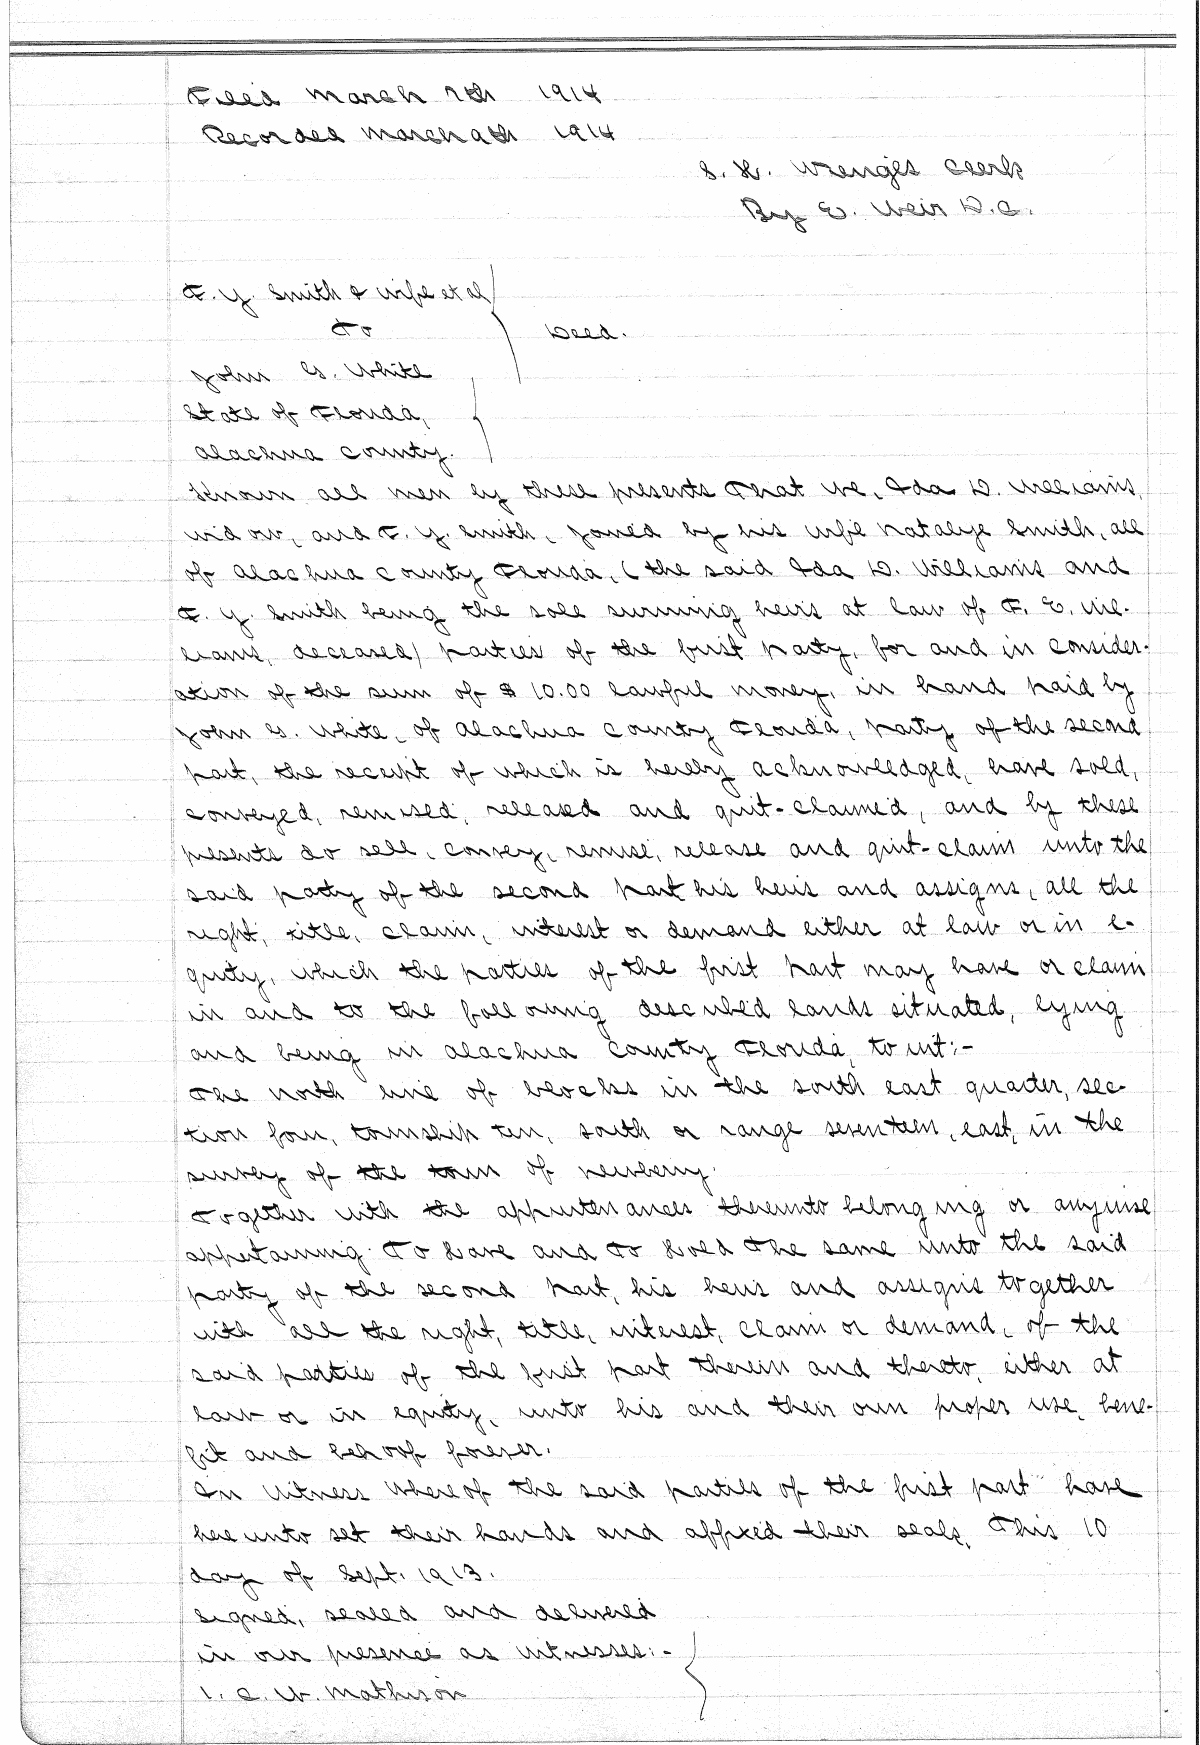 Filed March 7th 1914
Recorded March 9th 1914
S. H. Wienges Clerk
By E. Weir D.C.
F. Y. Smith & wife et al
To
Deed.
John G. White
State of Florida,
Alachua County.
Known all men by these presents That we, Ida D. Williams,
widow, and F. Y. Smith, joined by his wife Natalye Smith, all
of Alachua County Florida, (the said Ida D. Williams and
F. Y. Smith being the sole surviving heirs at law of F. E. Wil-
liams, deceased) parties of the first party, for and in consider-
ation of the sum of $10.00 lawful money, in hand paid by
John G. White, of Alachua County Florida, party of the second
part, the receipt of which is hereby acknowledged, have sold,
conveyed, remised, released and quit-claimed, and by these
presents do sell, convey, remise, release and quit-claim unto the
said party of the second part his heirs and assigns, all the
right, title, claim, interest or demand either at law or in e-
quity, which the parties of the first part may have or claim
in and to the following described lands situated, lying
and being in Alachua County Florida, to wit:-
The north line of blocks in the south east quarter, sec-
tion four, township ten, south or range seventeen, east, in the
survey of the town of Newberry.
Together with the appurtenances thereunto belonging or anywise
appertaining. To Have and To Hold The same unto the said
party of the second part, his heirs and assigns together
with all the right, title, interest, claim or demand, of the
said parties of the first part therein and thereto, either at
law or in equity, unto his and their own proper use, bene-
fit and behoof forever.
In Witness Whereof the said parties of the first part have
hereunto set their hands and affixed their seals, This 10
day of Sept. 1913.
Signed, sealed and delivered
in our presence as witnesses:-
1. C. W. Mathison